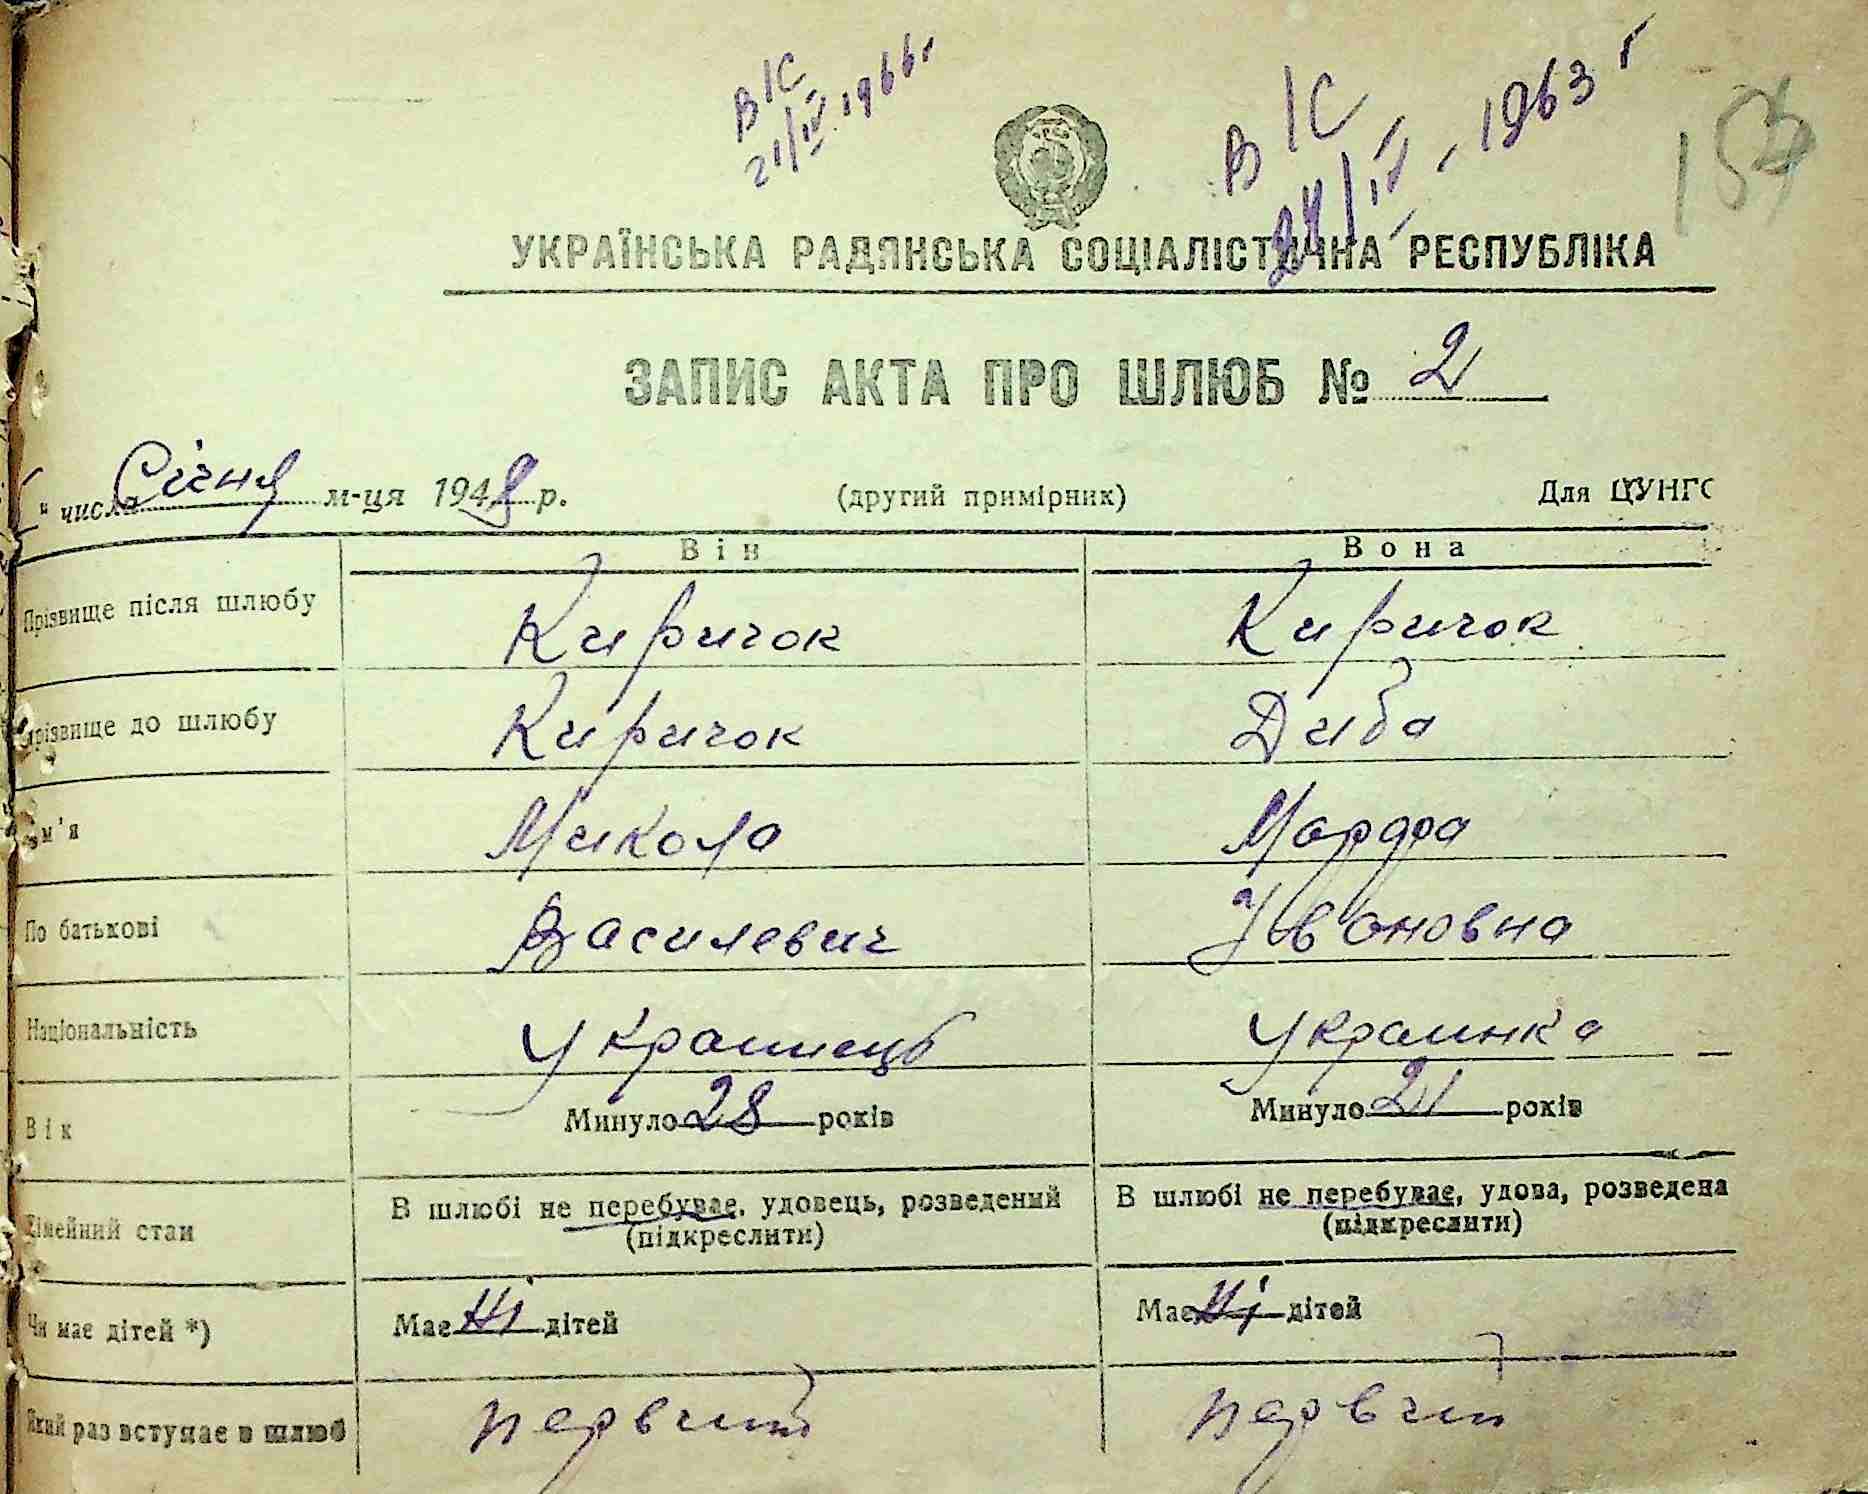 В/С
21/IV.1966г
В/С
24/IV.1963 г
УКРАЇНСЬКА РАДЯНСЬКА СОЦІАЛІСТИЧНА РЕСПУБЛІКА
ЗАПИС АКТА ПРО ШЛЮБ № 2
" числа Січня м-ця 1948 р. (другий примірник) Для ЦУНГО
Він Вона
Прізвище після шлюбу Киричок Киричок
Прізвище до шлюбу Киричок Диба
Ім'я Микола Марфа
По батькові Василевич Ивановна
Національність Украинець Украинка
Вік Минуло 28 років Минуло 21 років
Сімейний стан В шлюбі не перебуває, удовець, розведений В шлюбі не перебуває, удова, розведена
(підкреслити) (підкреслити)
Чи має дітей *) Має Ні дітей Має Ні дітей
Який раз вступає в шлюб первий первий